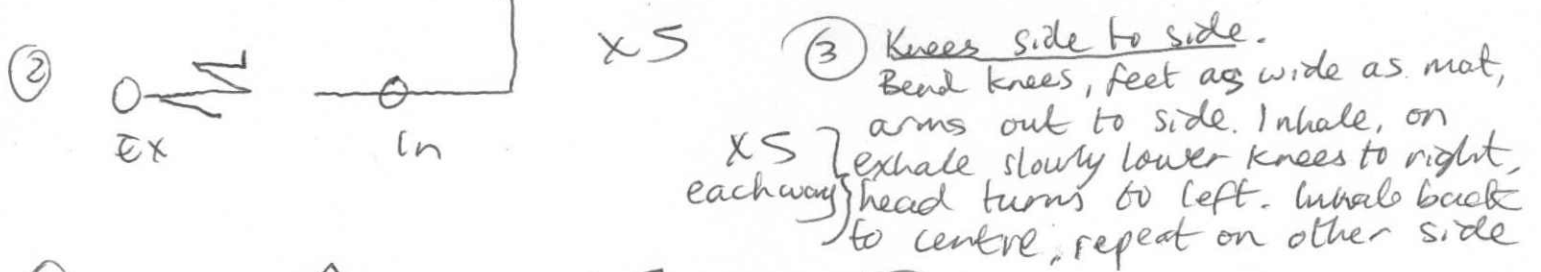 ②
Ex
In
x5
③ Knees side to side.
Bend knees, feet as wide as mat,
arms out to side. Inhale, on
exhale slowly lower knees to right,
head turns to left. Inhale back
to centre, repeat on other side
x5
each way